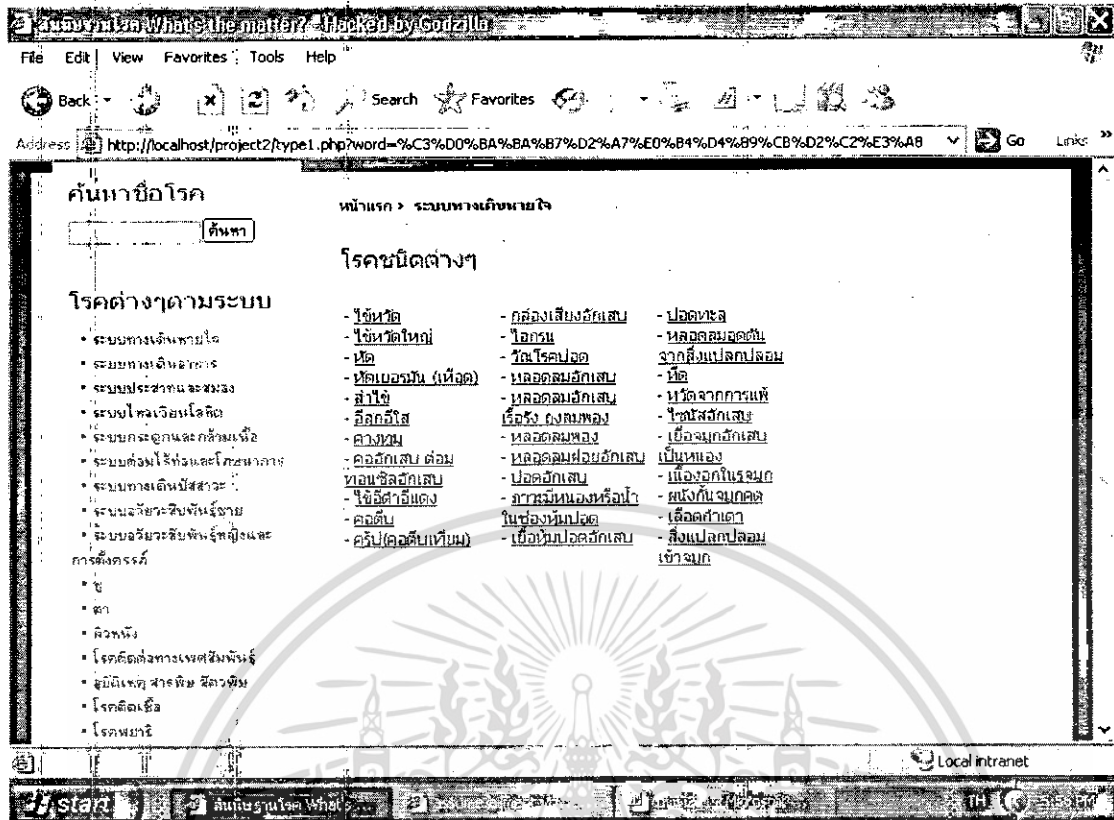 สันนิษฐานโรค What's the matter? - Hacked by Godzilla
File Edit View Favorites Tools Help
Back Search Favorites
Address http://localhost/project2/type1.php?word=%C3%D0%BA%BA%B7%D2%A7%E0%B4%D4%B9%CB%D2%C2%E3%A8 Go Links »
ค้นหาชื่อโรค
ค้นหา
โรคต่างๆตามระบบ
• ระบบทางเดินหายใจ
• ระบบทางเดินอาหาร
• ระบบประสาทและสมอง
• ระบบไหลเวียนโลหิต
• ระบบกระดูกและกล้ามเนื้อ
• ระบบต่อมไร้ท่อและโภชนาการ
• ระบบทางเดินปัสสาวะ
• ระบบอวัยวะสืบพันธุ์ชาย
• ระบบอวัยวะสืบพันธุ์หญิงและ
การตั้งครรภ์
• หู
• ตา
• ผิวหนัง
• โรคติดต่อทางเพศสัมพันธ์
• อุบัติเหตุ สารพิษ สัตว์พิษ
• โรคติดเชื้อ
• โรคพยาธิ
หน้าแรก > ระบบทางเดินหายใจ
โรคชนิดต่างๆ
- ไข้หวัด
- ไข้หวัดใหญ่
- หัด
- หัดเยอรมัน (เหือด)
- ส่าไข้
- อีสุกอีใส
- คางทูม
- คออักเสบ ต่อม
ทอนซิลอักเสบ
- ไข้อีดำอีแดง
- คอตีบ
- ครุ้ป(คอตีบเทียม)
- กล่องเสียงอักเสบ
- ไอกรน
- วัณโรคปอด
- หลอดลมอักเสบ
- หลอดลมอักเสบ
เรื้อรัง ถุงลมพอง
- หลอดลมพอง
- หลอดลมฝอยอักเสบ
- ปอดอักเสบ
- ภาวะมีหนองหรือน้ำ
ในช่องหุ้มปอด
- เยื่อหุ้มปอดอักเสบ
- ปอดทะลุ
- หลอดลมอุดตัน
จากสิ่งแปลกปลอม
- หืด
- หวัดจากการแพ้
- ไซนัสอักเสบ
- เยื่อจมูกอักเสบ
เป็นหนอง
- เนื้องอกในรูจมูก
- ผนังกั้นจมูกคด
- เลือดกำเดา
- สิ่งแปลกปลอม
เข้าจมูก
Local intranet
start สันนิษฐานโรค What's ... TH 5:56 PM